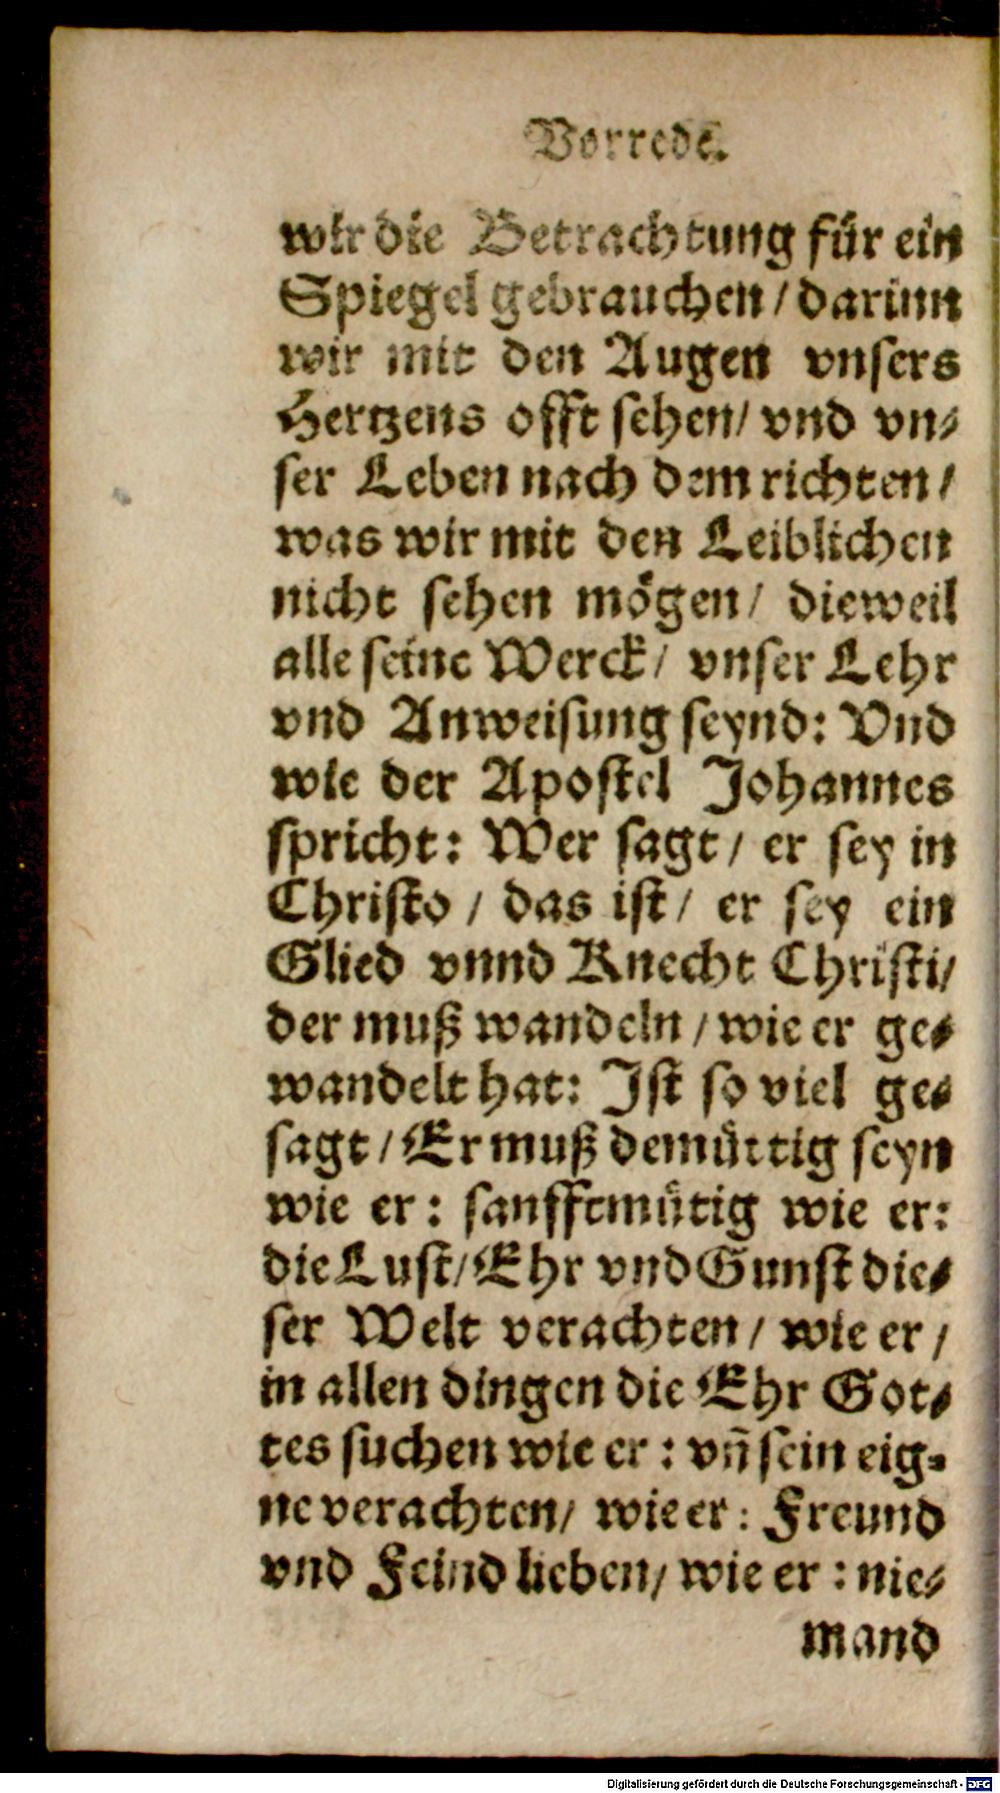 Vorrede.
wir die Betrachtung für ein
Spiegel gebrauchen / darinn
wir mit den Augen vnsers
Hertzens offt sehen / vnd vn⸗
ser Leben nach dem richten /
was wir mit den Leiblichen
nicht sehen mögen / dieweil
alle seine Werck / vnser Lehr
vnd Anweisung seynd: Vnd
wie der Apostel Johannes
spricht: Wer sagt / er sey in
Christo / das ist / er sey ein
Glied vnnd Knecht Christi /
der muß wandeln / wie er ge⸗
wandelt hat: Ist so viel ge⸗
sagt / Er muß demüttig seyn
wie er: sanfftmütig wie er:
die Lust / Ehr vnd Gunst die⸗
ser Welt verachten / wie er /
in allen dingen die Ehr Got⸗
tes suchen wie er: vñ sein eig⸗
ne verachten / wie er: Freund
vnd Feind lieben / wie er: nie⸗
mand
Digitalisierung gefördert durch die Deutsche Forschungsgemeinschaft - DFG